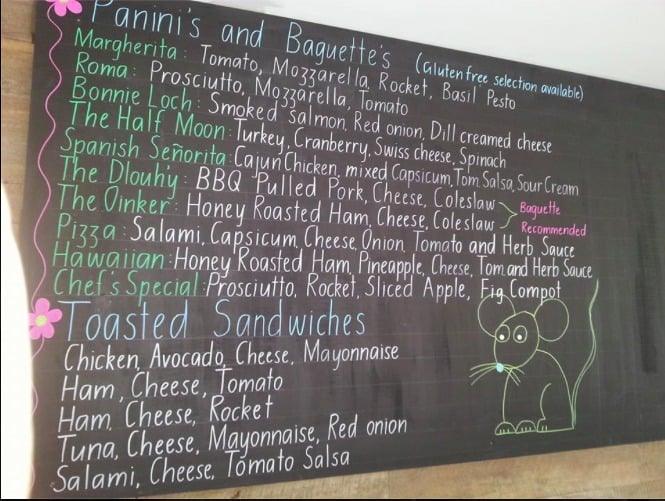 Panini's and Baguette's (Gluten free selection available)
Margherita: Tomato, Mozzarella, Rocket, Basil Pesto
Roma: Prosciutto, Mozzarella, Tomato
Bonnie Loch: Smoked salmon, Red onion, Dill creamed cheese
The Half Moon: Turkey, Cranberry, Swiss cheese, Spinach
Spanish Señorita: Cajun Chicken, mixed Capsicum, Tom. Salsa, Sour Cream
The Dlouhy: BBQ Pulled Pork, Cheese, Coleslaw
The Oinker: Honey Roasted Ham, Cheese, Coleslaw
Baguette
Recommended
Pizza: Salami, Capsicum, Cheese, Onion, Tomato and Herb Sauce
Hawaiian: Honey Roasted Ham, Pineapple, Cheese, Tom. and Herb Sauce
Chef's Special: Prosciutto, Rocket, Sliced Apple, Fig Compot
Toasted Sandwiches
Chicken, Avocado, Cheese, Mayonnaise
Ham, Cheese, Tomato
Ham, Cheese, Rocket
Tuna, Cheese, Mayonnaise, Red onion
Salami, Cheese, Tomato Salsa